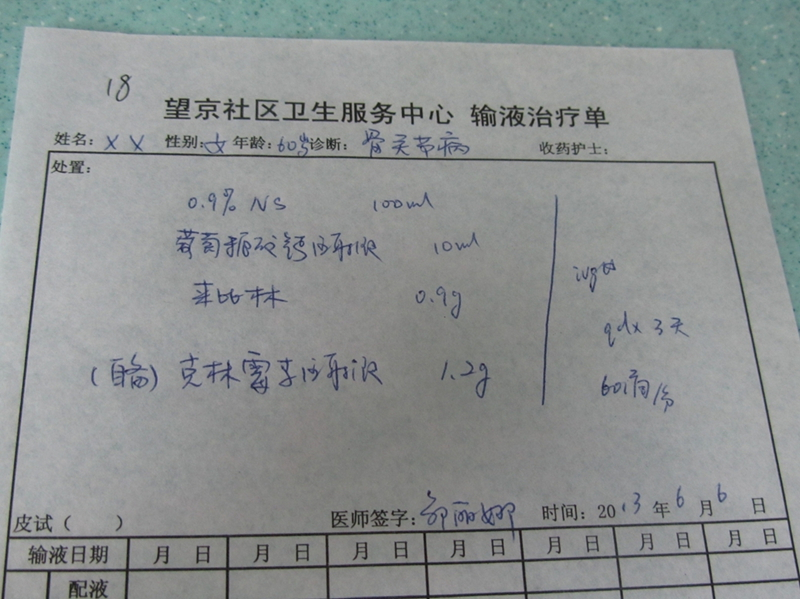 18
望京社区卫生服务中心 输液治疗单
姓名: XX 性别: 女 年龄: 60岁 诊断: 骨关节病 收药护士:
处置:
0.9% NS 100ml
葡萄糖酸钙注射液 10ml
来比林 0.9g
(自备) 克林霉素注射液 1.2g
ivgtt
qdx3天
60滴/分
皮试( ) 医师签字: 邹丽娜 时间: 2013年6月6日
输液日期 月 日 月 日 月 日 月 日 月 日 月 日 月 日
配液